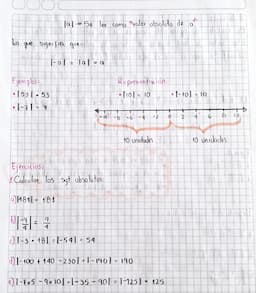 |a| → Se lee como "valor absoluto de a"
Lo que significa que:
|-a| = |a| = a
Ejemplos: Representación
• |53| = 53 • |10| = 10 • |-10| = 10
10 unidades 10 unidades
Ejercicios:
Calcular los sgt absolutos
a) |181| = 181
c) |-3 · 18| = |-54| = 54
d) |-100 + 140 - 230| = |-190| = 190
e) |-7×5 - 9×10| = |-35 - 90| = |-125| = 125